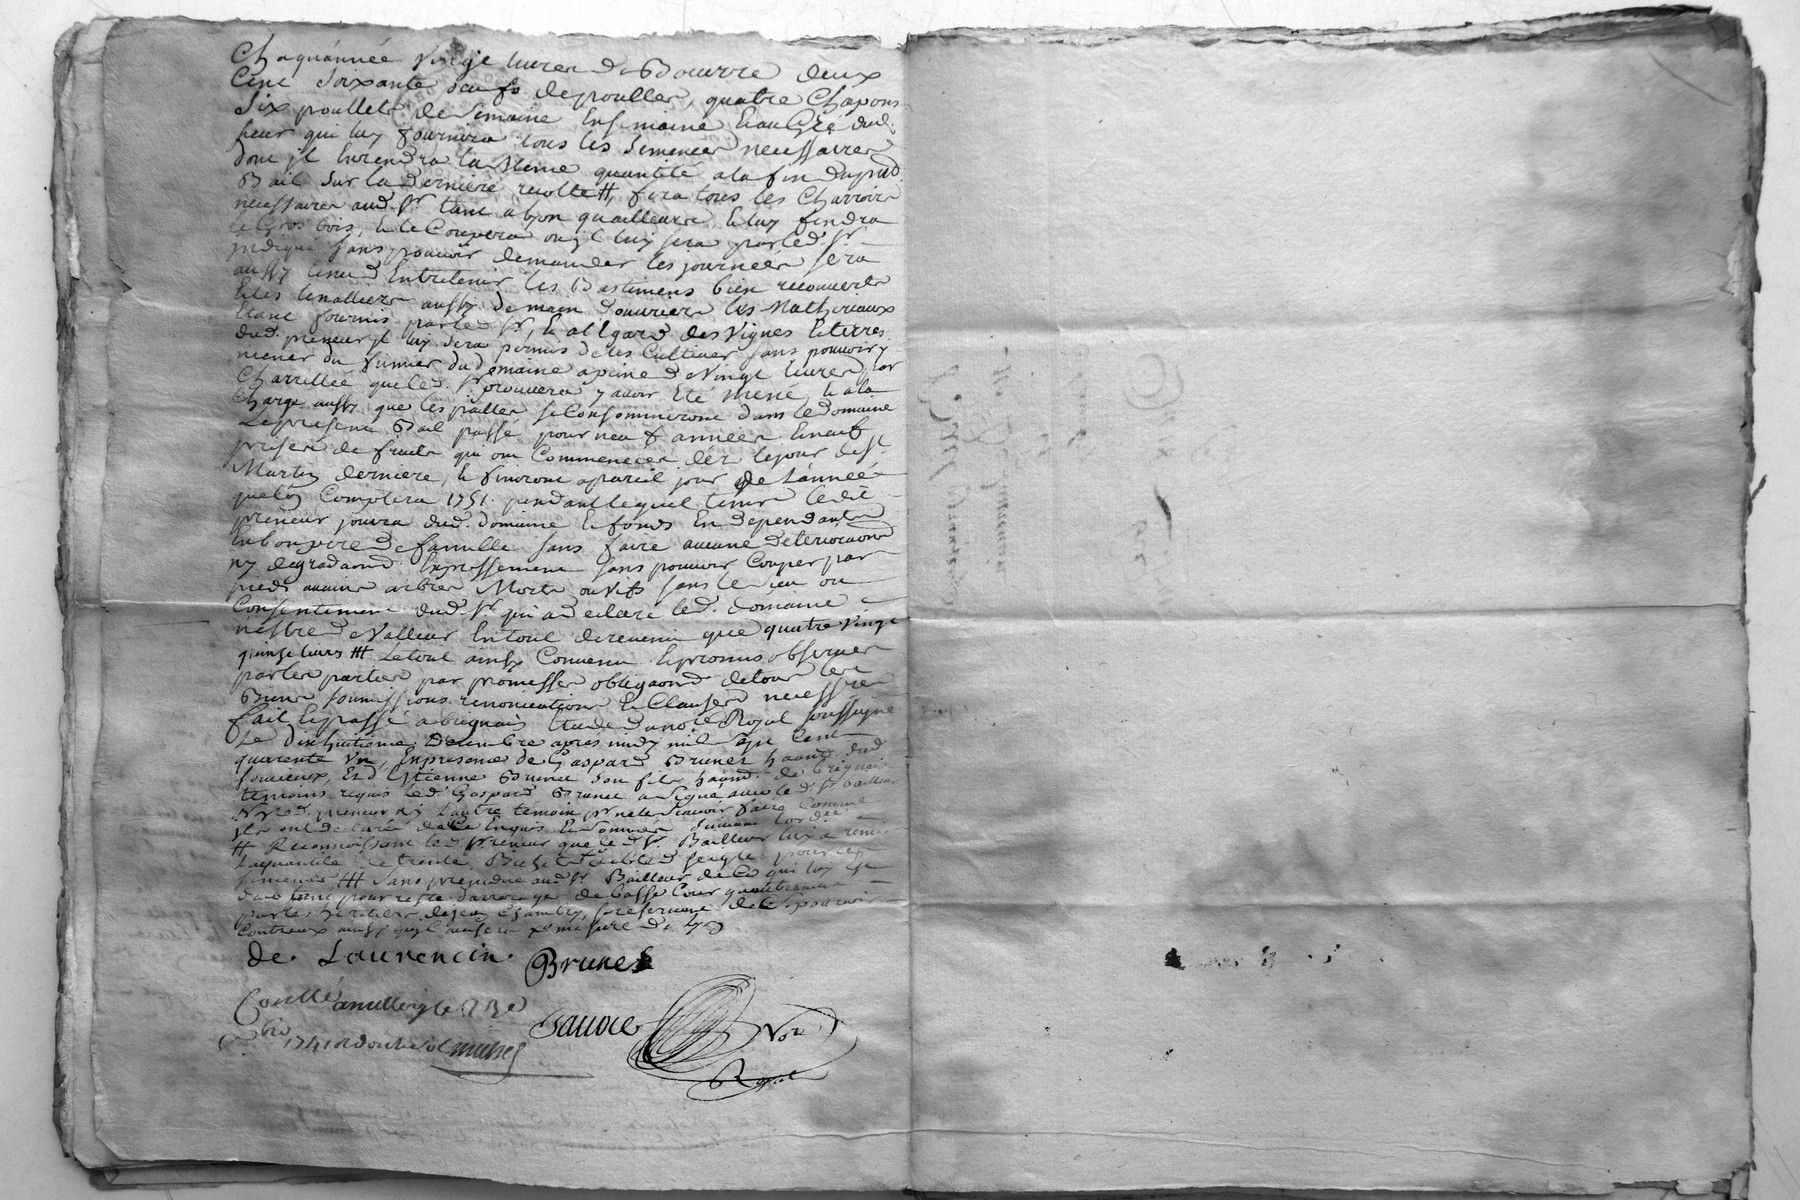 Chaquannée Vingt livres de Bourre deux
Cent Soixante oeufs de poulles, quatre Chapons
Six poullets de Semaine En Semaine Et au Gré dud.
sieur qui luy fournira tous les Semences necessaires
dont jl Enrendra la Meme quantité a la fin dupnt
Bail Sur la Derniere recolte #, fera tous les Charrois
necessaires aud. Sr. tant a lyon quailleurs Et luy fendra
le Gros bois, Et le Coupera ou jl luy sera par led. Sr.
jndiqué sans pouvoir demander les journées sera
aussy tenu d'Entretenir les Bastimens bien recouverts
Et les tenalliers aussy de main d'ouvrier les Matheriaux
Etant fournis par led. Sr, Et al'Egard des Vignes Et terres
dud. preneur jl luy sera permis de les Cultiver sans pouvoir y
mener du fumier dud domaine a peine de Vingt livres par
Charrettée que led. Sr prouvera y avoir Eté Mené, Et a la
Charge aussy que les pailles se Consommeront dans le domaine
Le present Bail passé pour neuf années Et neuf
prises de fruits qui ont Commencées dez le jour de St.
Martin derniere, Et finiront a pareil jour de L'année
que lon Comptera 1751. pendant lequel tems ledit
preneur jouira dud. domaine Et fonds En dependants
En bon pere de famille sans faire aucune deterioraons
ny degradaons Expressement sans pouvoir Couper par
pieds aucuns arbres Morts ou Vifs sans le veu ou
Consentement dud. Sr. qui a declaré led. domaine
n'estre de Valleur En tout de revenu que quatre Vingt
quinze livres ## Le tout ainsy Convenu Et promis observer
par les parties par promesses obligaons de tous les
Biens soumissions renonciations Et Clauses necessres
fait Et passé a brignais Etude du nore Royal soussigné
Le dixhuitieme Decembre apres midy mil sept Cent
quarente Un, En presence de Gaspard Brunet haant dud
soucieux, Et d'Etienne Brunet son fils haant de brignais
temoins requis led. Gaspard Brunet a signé avec le d. Sr bailleur
Non led. preneur ny L'autre temoin pr ne le Scavoir faire Comme
jls ont declaré de Ce Enquis Et Sommés Suivant Lordce
# Reconnoissant led Preneur que le d Sr. Bailleur luy a remis
la quantité de trente Bichets de bled seigle pour les
semences ## Sans prejudice aud Sr Bailleur de Ce qui luy est
dub tant pour reste d'arrerages de basse Cour
par les heritiers de jean Chambry, se reservant de se pourvoir
Contreux
de Laurencin Brunet
Conllé a millery le 23e
Xbre 1741 R douze sols michel
Sauvoie Nore
Royal